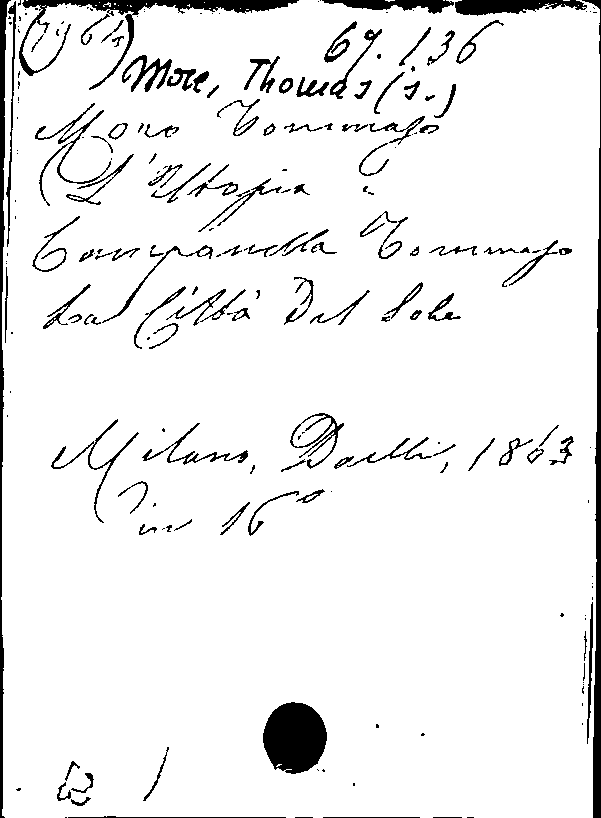 (7964)
69.136
More, Thomas (s.)
Moro Tommaso
L'Utopia "
Campanella Tommaso
La Città Del Sole
Milano, Daelli, 1863
in 16°